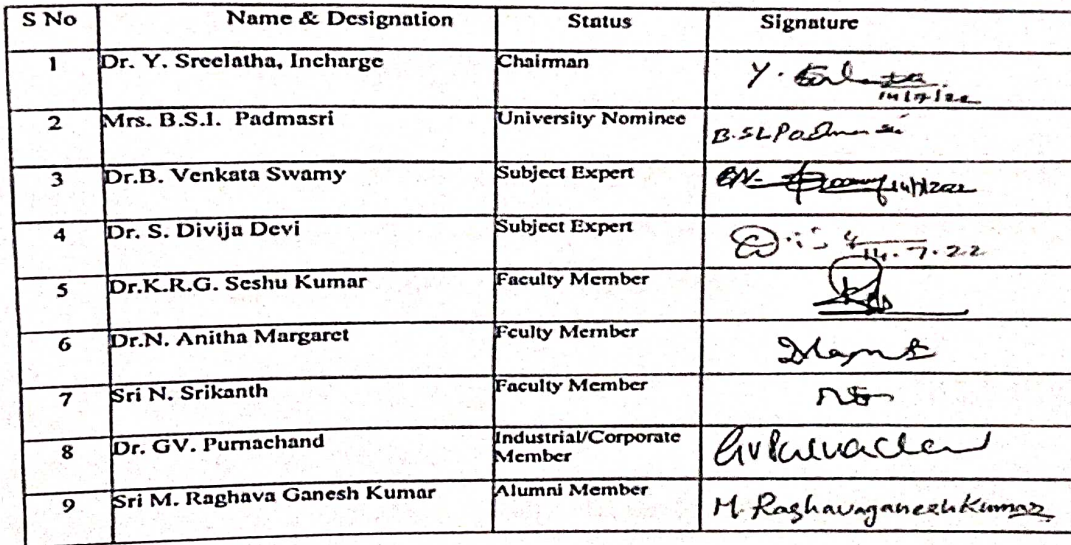 S No Name & Designation Status Signature
1 Dr. Y. Sreelatha, Incharge Chairman Y.
14/7/22
2 Mrs. B.S.I. Padmasri University Nominee B.SL Padmasri
3 Dr.B. Venkata Swamy Subject Expert
4 Dr. S. Divija Devi Subject Expert
14.7.22
5 Dr.K.R.G. Seshu Kumar Faculty Member
6 Dr.N. Anitha Margaret Fculty Member
7 Sri N. Srikanth Faculty Member
8 Dr. GV. Purnachand Industrial/Corporate
Member
9 Sri M. Raghava Ganesh Kumar Alumni Member M. Raghavaganesh Kumar